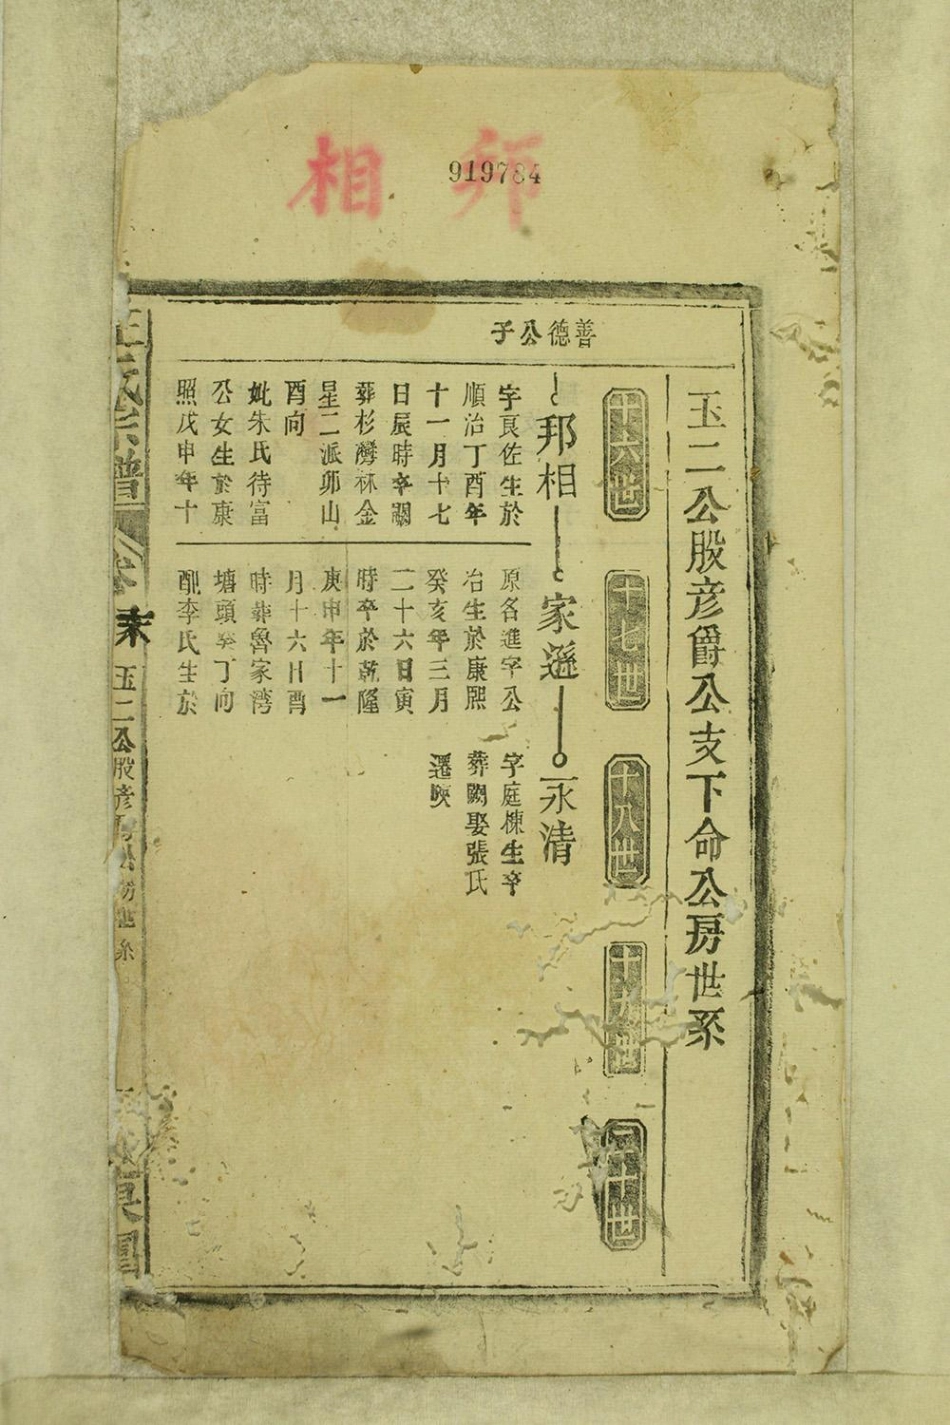 相 邦
919784
玉二公股彦爵公支下命公房世系
十六世
十七世
十八世
十九世
二十世
善德公子
邦相
字良佐生於
順治丁酉年
十一月十七
日辰時卒闕
葬杉灣林金
星二派卯山
酉向
妣朱氏待富
公女生於康
熙戊申年十
家遜
原名進字公
冶生於康熙
癸亥年三月
二十六日寅
時卒於乾隆
庚申年十一
月十六日酉
時葬魯家湾
塘頭癸丁向
配李氏生於
永清
字庭棟生卒
葬闕娶張氏
遷陝
氏宗譜
卷末
玉二公股彦